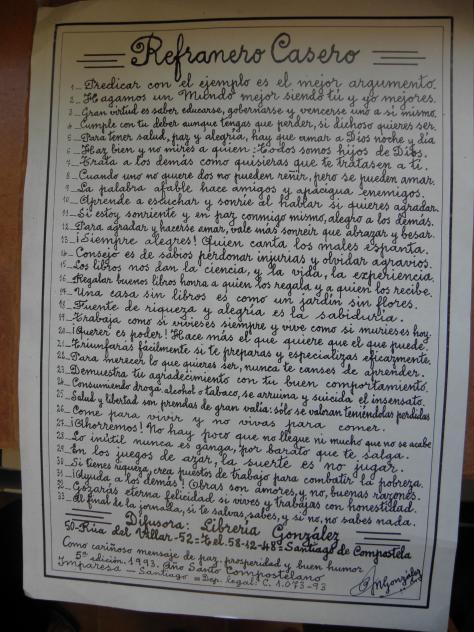 Refranero Casero
1_ Predicar con el ejemplo es el mejor argumento.
2_ Hagamos un Mundo mejor siendo tú y yo mejores.
3_ Gran virtud es saber educarse, gobernarse y vencerse uno a sí mismo.
4_ Cumple con tu deber aunque tengas que perder, si dichoso quieres ser.
5_ Para tener salud, paz y alegría, hay que amar a Dios noche y día
6_ Haz bien y no mires a quien: Todos somos hijos de Dios.
7_ Trata a los demás como quisieras que te tratasen a ti.
8_ Cuando uno no quere dos no pueden reñir, pero se pueden amar.
9_ La palabra afable hace amigos y apacigua enemigos.
10_ Aprende a escuchar y sonríe al hablar si quieres agradar.
11_ Si estoy sonriente y en paz conmigo mismo, alegro a los demás.
12_ Para agradar y hacerse amar, vale más sonreir que abrazar y besar.
13_ ¡Siempre alegres! Quien canta los males espanta.
14_ Consejo es de sabios perdonar injurias y olvidar agravios.
15_ Los libros nos dan la ciencia, y la vida, la experiencia.
16_ Regalar buenos libros honra a quien los regala y a quien los recibe.
17_ Una casa sin libros es como un jardín sin flores.
18_ Fuente de riqueza y alegría es la sabiduría.
19_ Trabaja como si vivieses siempre y vive como si murieses hoy.
20_ ¡Querer es poder! Hace más el que quiere que el que puede.
21_ Triunfarás fácilmente si te preparas y especializas eficazmente.
22_ Para merecer lo que quieres ser, nunca te canses de aprender.
23_ Demuestra tu agradecimiento con tu buen comportamiento.
24_ Consumiendo droga alcohol o tabaco, se arruina y suicida el insensato.
25_ Salud y libertad son prendas de gran valía: sólo se valoran teniéndolas perdidas
26_ Come para vivir y no vivas para comer.
27_ ¡Ahorremos! No hay poco que no llegue ni mucho que no se acabe
28_ Lo inútil nunca es ganga, por barato que te salga.
29_ En los juegos de azar, la suerte es no jugar.
30_ Si tienes riqueza, crea puestos de trabajo para combatir la pobreza.
31_ ¡Ayuda a los demás! Obras son amores, y no, buenas razones.
32_ Gozarás eterna felicidad si vives y trabajas con honestidad.
33_ Al final de la jornada, si te salvas, sabes, y si no, no sabes nada.
Difusora: Librería González
50-Rúa del Villar-52=Tel. 58-12-48= Santiago de Compostela
Como cariñoso mensaje de paz, prosperidad y buen humor
5ª edición. 1.993. Año Santo Compostelano
Imparesa — Santiago = Dep. legal: C. 1.073-93
González